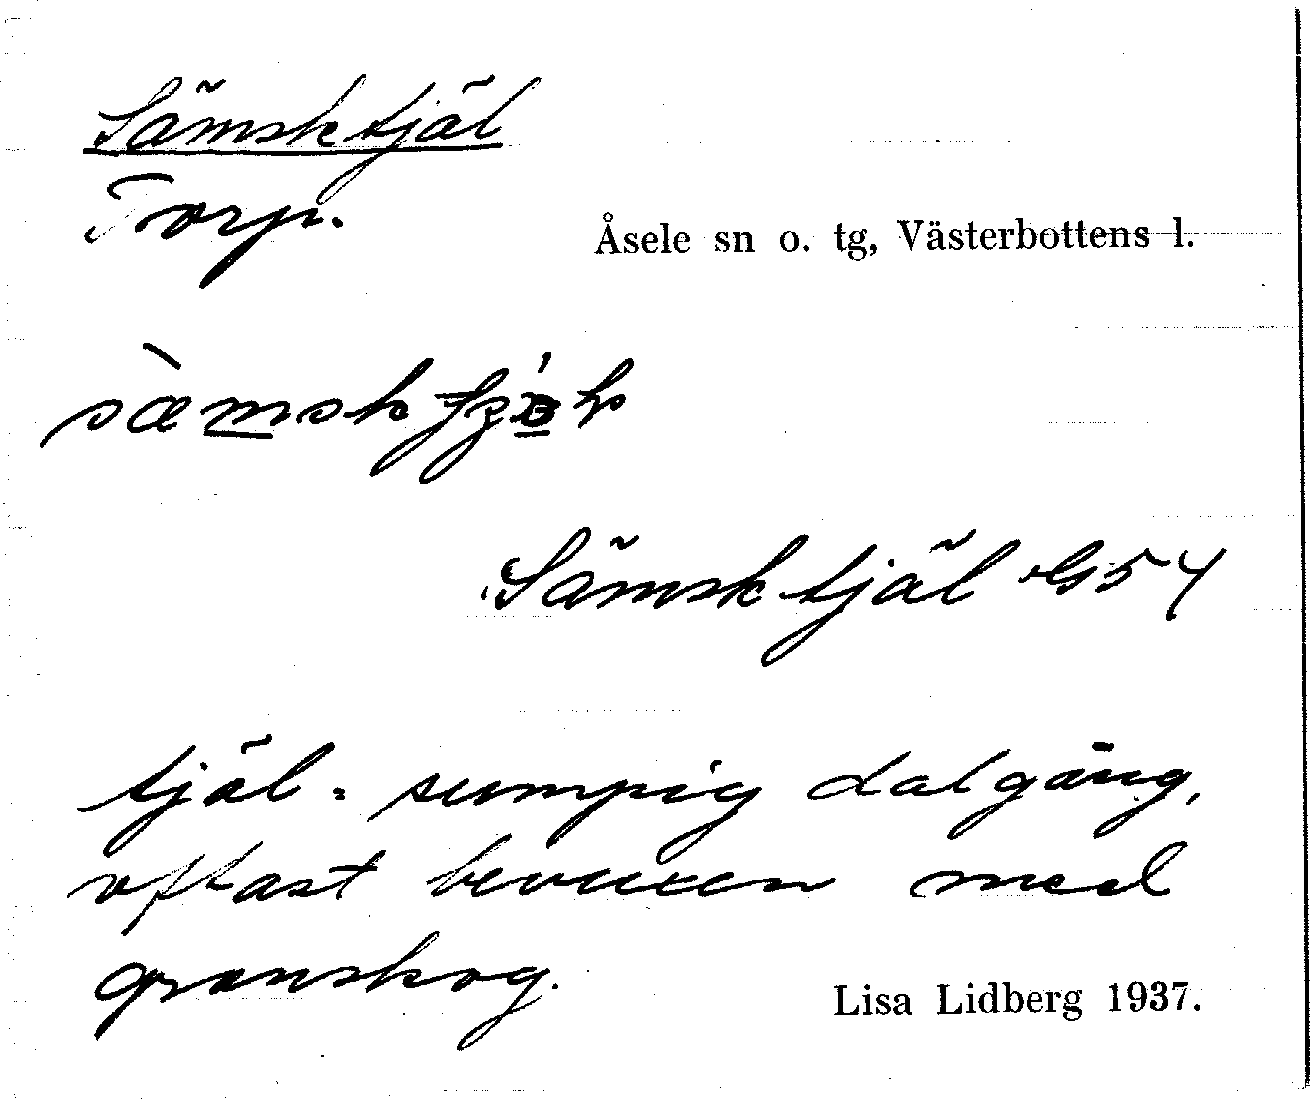 Sämsktjäl
Torp.
Åsele sn o. tg, Västerbottens l.
Sämsktjäl G54
tjäl = sumpig dalgång,
oftast bevuxen med
granskog.
Lisa Lidberg 1937.